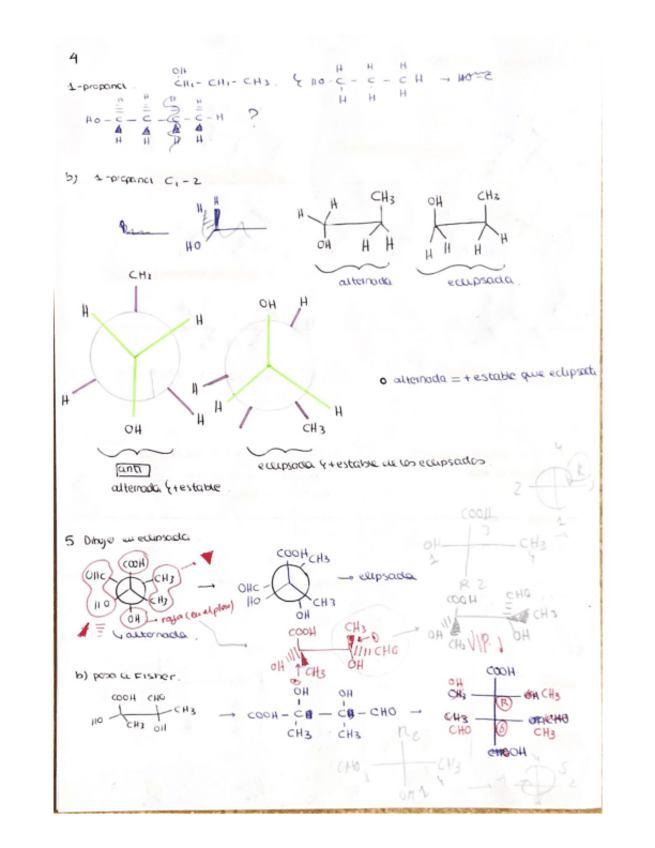 4
1-propanol OH CH₂- CH₂- CH₃. H H H HO-C-C-C H → HO-C H H H
H H H H HO-C-C-C-C-H ? H H H H
b) 1-propanol C₁-2
H H HO H H OH CH₃ H H OH CH₃ H H H H
alternada eclipsada.
CH₃ H H H H OH
OH H H H H CH₃
o alternada = + estable que eclipsada
anti
alternada y + estable
eclipsada y + estable de los eclipsados.
4 R 2 1
5 Dibujo en eclipsada
COOH OH 3 CH₃ 1 4 R 2
OHC COOH CH₃ HO CH₃ OH → COOH CH₃ OHC HO CH₃ OH → eclipsada
alternada.
COOH CH₃ OH CH₃ OH CHO
COOH CHO CH₃ OH CH₃ OH
b) pasa a Fisher.
COOH CHO HO CH₃ CH₃ OH → OH OH COOH-C-C-CHO CH₃ CH₃ → COOH OH CH₃ R CH₃ CHO S CH₃
CHO CH₃ OH 1 4 S 2